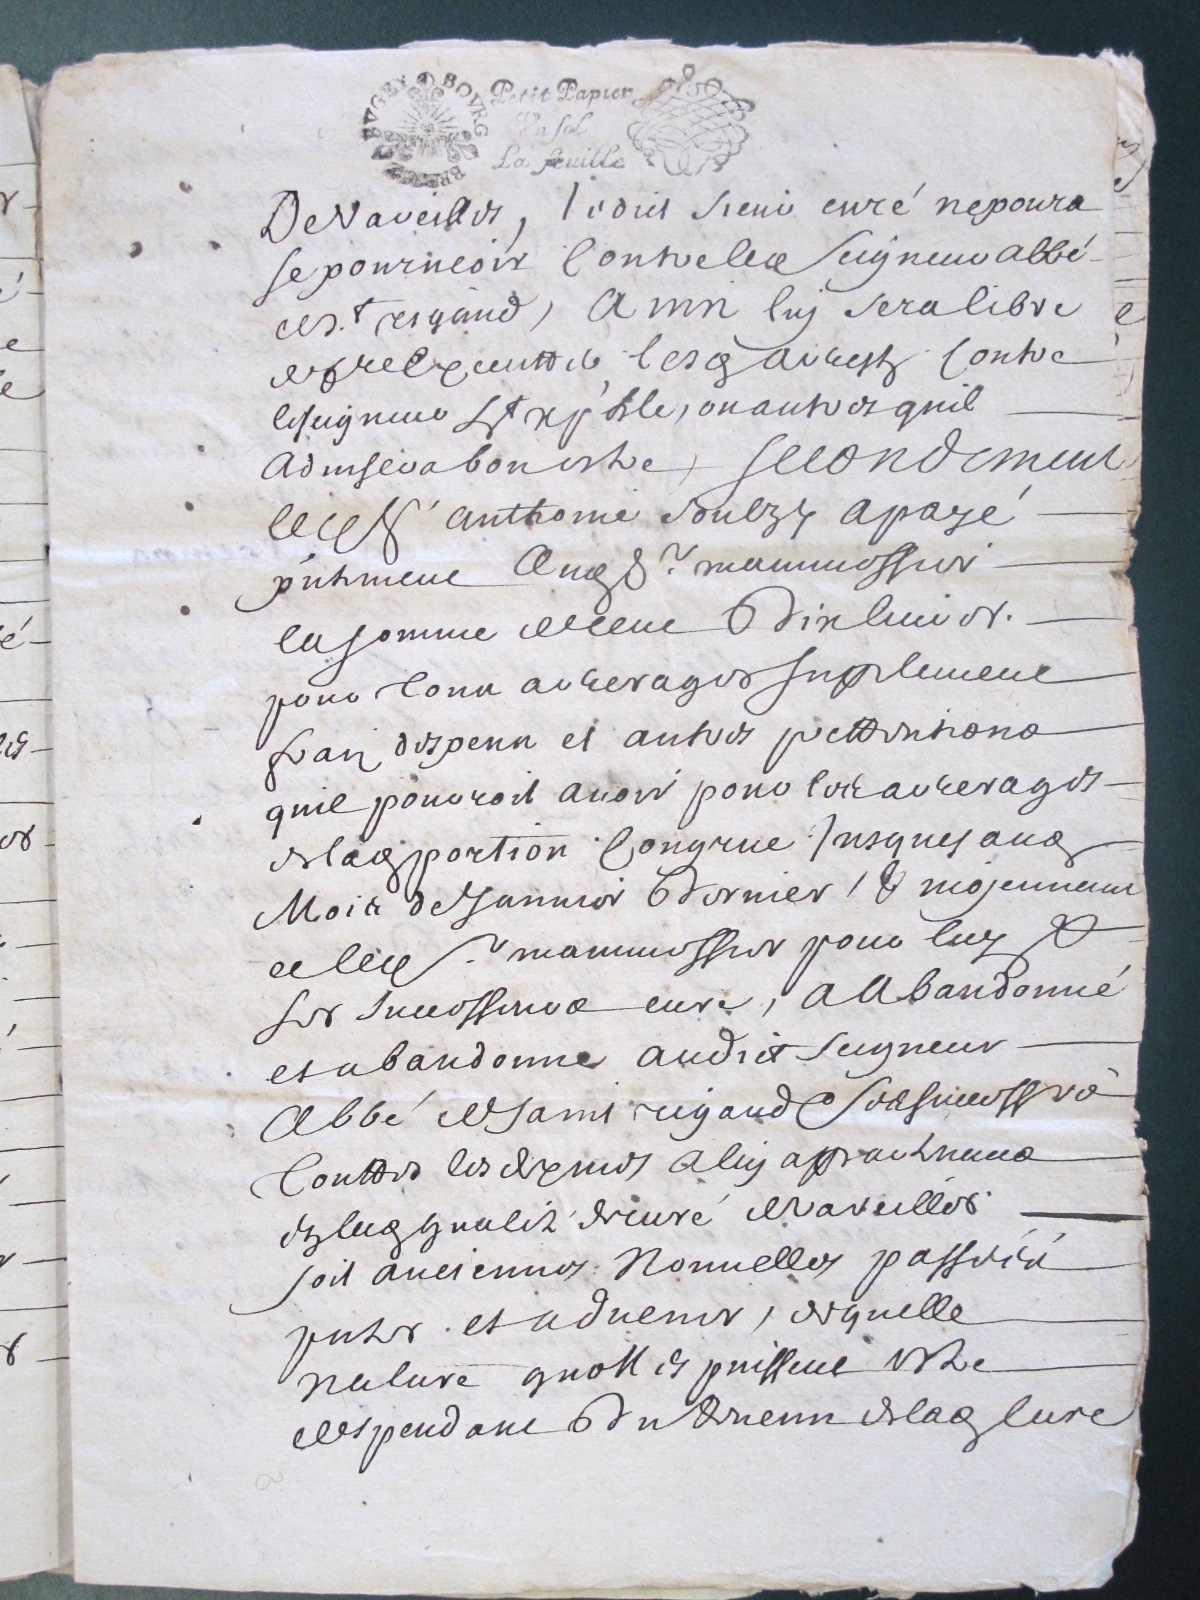 BVGEY BOVRG BRE
Petit Papier
Un sol
La feuille
De Vareilles, ledict sieur curé ne poura
se pourueoir contre led Seigneur abbé
de St rigaud, Ains luy sera libre
de contre
le seigneur ou autres quil
aduisera bon estre, secondement
ledt Sr anthoine apayé
audt Sr mammessier
la somme de cent dix liures
pour tous arrerages supplement
frais despens et autres prettentions
quil pourroit auoir pour les arrerages
de lad portion Congrue Jusques au
Mois de Januier dernier, & moyennant
ce led Sr mammessier pour luy &
ses successeurs curé, a abandonné
et abandonne audict Seigneur
Abbé de saint rigaud & ses successeurs
Touttes les dixmes a luy appartenant
en lad qualité de curé de Vareilles
soit anciennes Nouuelles
et aduenir, de quelle
nature quelles puissent estre
despendant du reuenu de lad cure